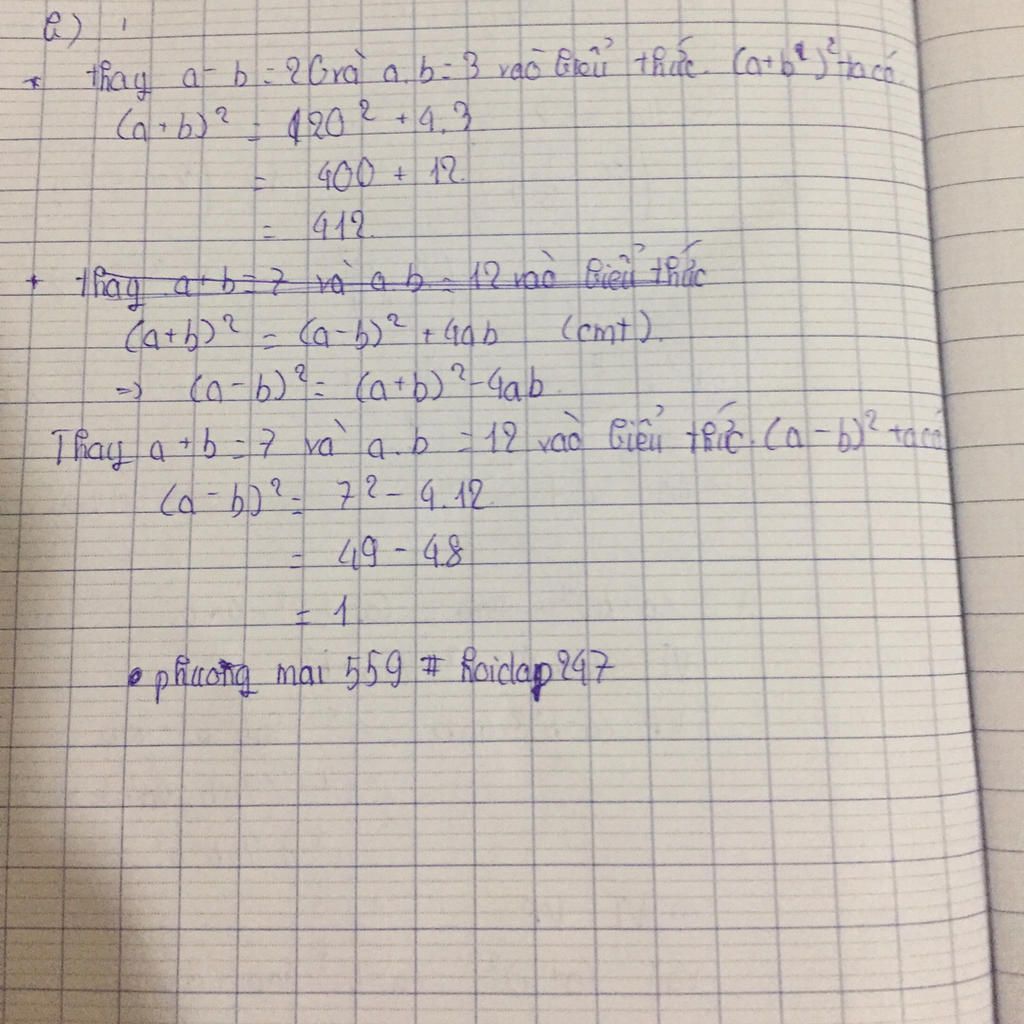 b)
* thay a - b = 20 và a.b = 3 vào biểu thức (a+b²)² ta có
(a+b)² = 20² + 4.3
= 400 + 12
= 412
+ thay a+b = 7 và a.b = 12 vào biểu thức
(a+b)² = (a-b)² + 4ab (cmt).
=> (a-b)² = (a+b)² - 4ab
Thay a+b = 7 và a.b = 12 vào biểu thức (a-b)² ta có
(a-b)² = 7² - 4.12
= 49 - 48
= 1
phuong mai 559 # hoidap247